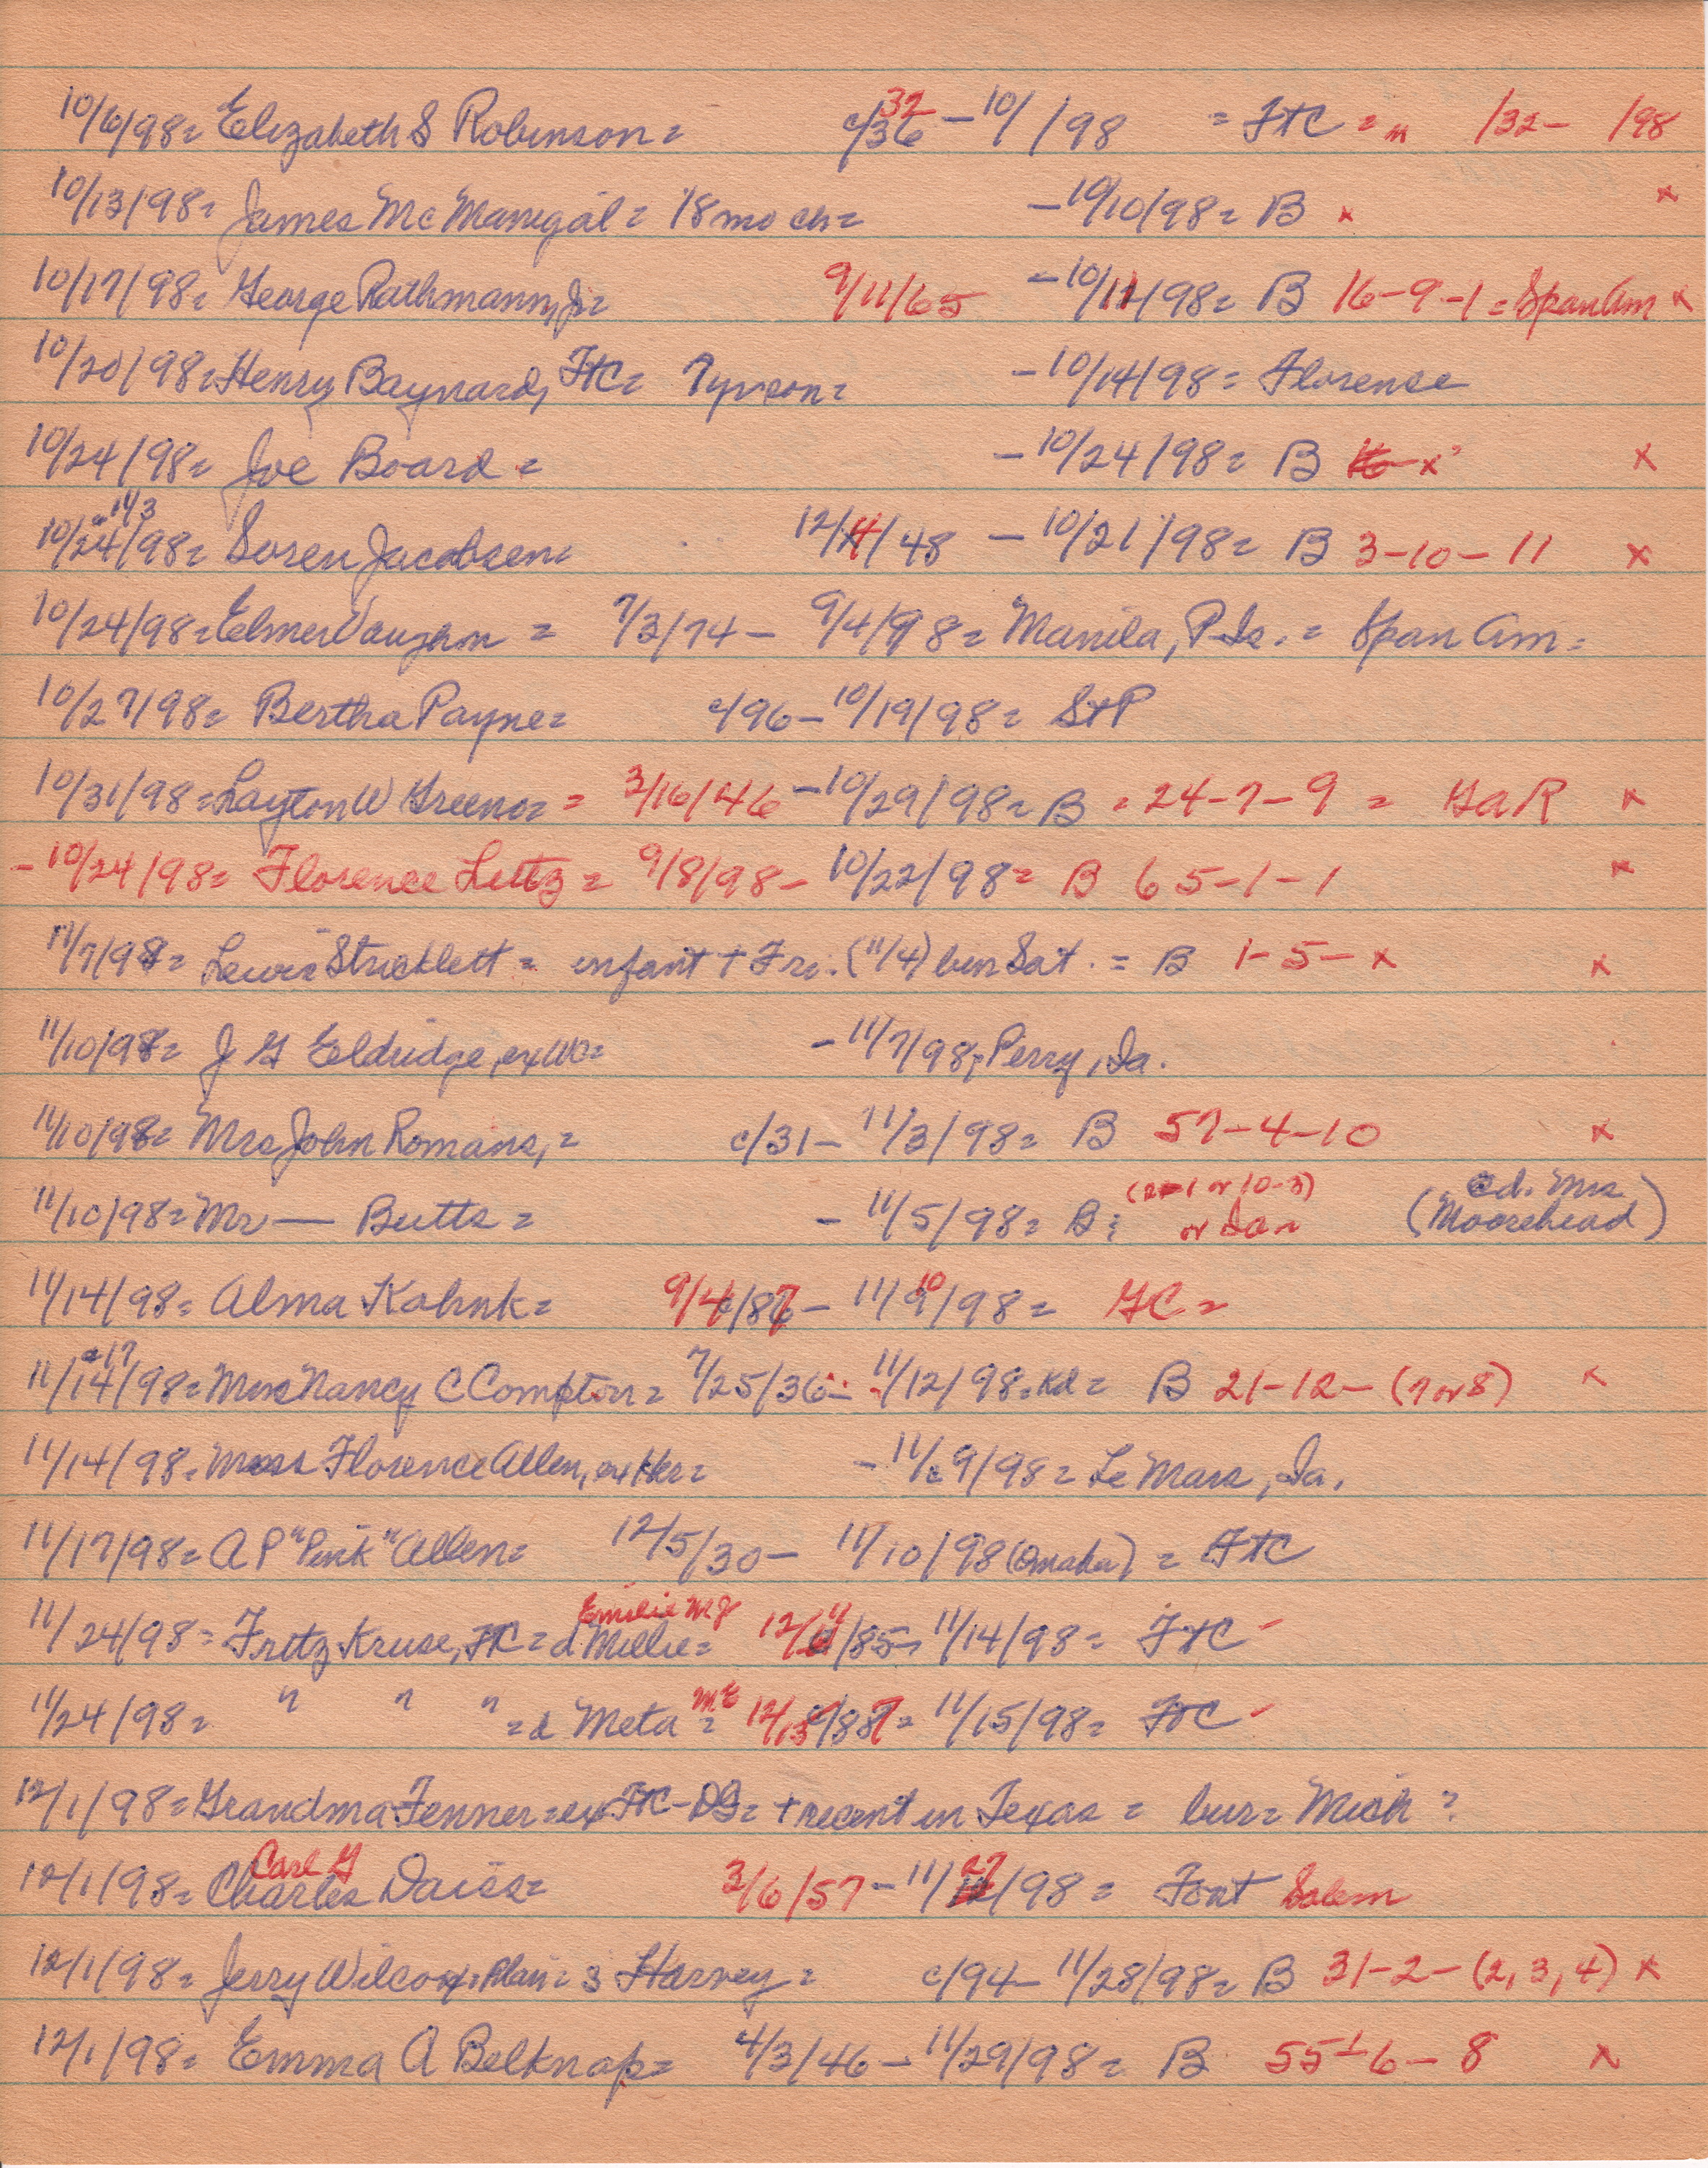 10/6/98= Elizabeth S Robinson= c/36 32 -10/ /98 = FtC = m /32- /98
10/13/98= James McManegal= 18 mo ch= -10/10/98= B x x
10/17/98= George Rathmann, Jr= 9/11/65 -10/11/98= B 16-9-1= Span Am x
10/20/98= Henry Baynard, FtC= Tyson= -10/14/98= Florence
10/24/98= Joe Board= -10/24/98= B x x
10/24/98= 11/3 Soren Jacobsen= 12/4/48 -10/21/98= B 3-10-11 x
10/24/98= Elmer Vaughn = 7/3/74- 9/4/98= Manila, P.Is. = Span Am=
10/27/98= Bertha Payne= c/96-10/19/98= StP
10/31/98= Layton W Greeno= = 3/16/46 -10/29/98= B = 24-7-9 = GaR x
-10/24/98= Florence Lutz= 9/8/98- 10/22/98= B 65-1-1 x
11/7/98= Lewis Stricklett= infant + Fri. (11/4) bur Sat. = B 1-5-x x
11/10/98= J G Eldridge, ex WO= -11/7/98; Perry, Ia.
11/10/98= Mrs John Romans,= c/31- 11/3/98= B 57-4-10 x
11/10/98= Mr — Butts= -11/5/98= B; (2-1 or 10-3) or Ia= (cd. Mrs Moorehead)
11/14/98= Alma Kohnk= 9/4/87- 11/10/98= GC=
11/14/98= a17 Mrs Nancy C Compton= 7/25/36- 11/12/98= Kd= B 21-12-(7 or 8) x
11/14/98= Florence Allen, ex Her= -11/9/98= Le Mars, Ia.
11/17/98= A P "Pink" Allen= 12/5/30- 11/10/98 (Omaha) = FtC
11/24/98= Fritz Kruse, FtC= d Millie= Emilie M J 12/11/85- 11/14/98= FtC -
11/24/98= " " " =d Meta = M E 12/13/87= 11/15/98= FtC -
12/1/98= Grandma Fenner= ex FtC-DG= + recent in Texas = bur= Mich?
12/1/98= Charles Carl G Daiss= 3/6/57-11/27/98= Font Salem
12/1/98= Jerry Wilcox, Plain= s Harvey= c/94- 11/28/98= B 31-2-(2,3,4) x
12/1/98= Emma A Belknap= 4/3/46- 11/29/98= B 55-6-8 x